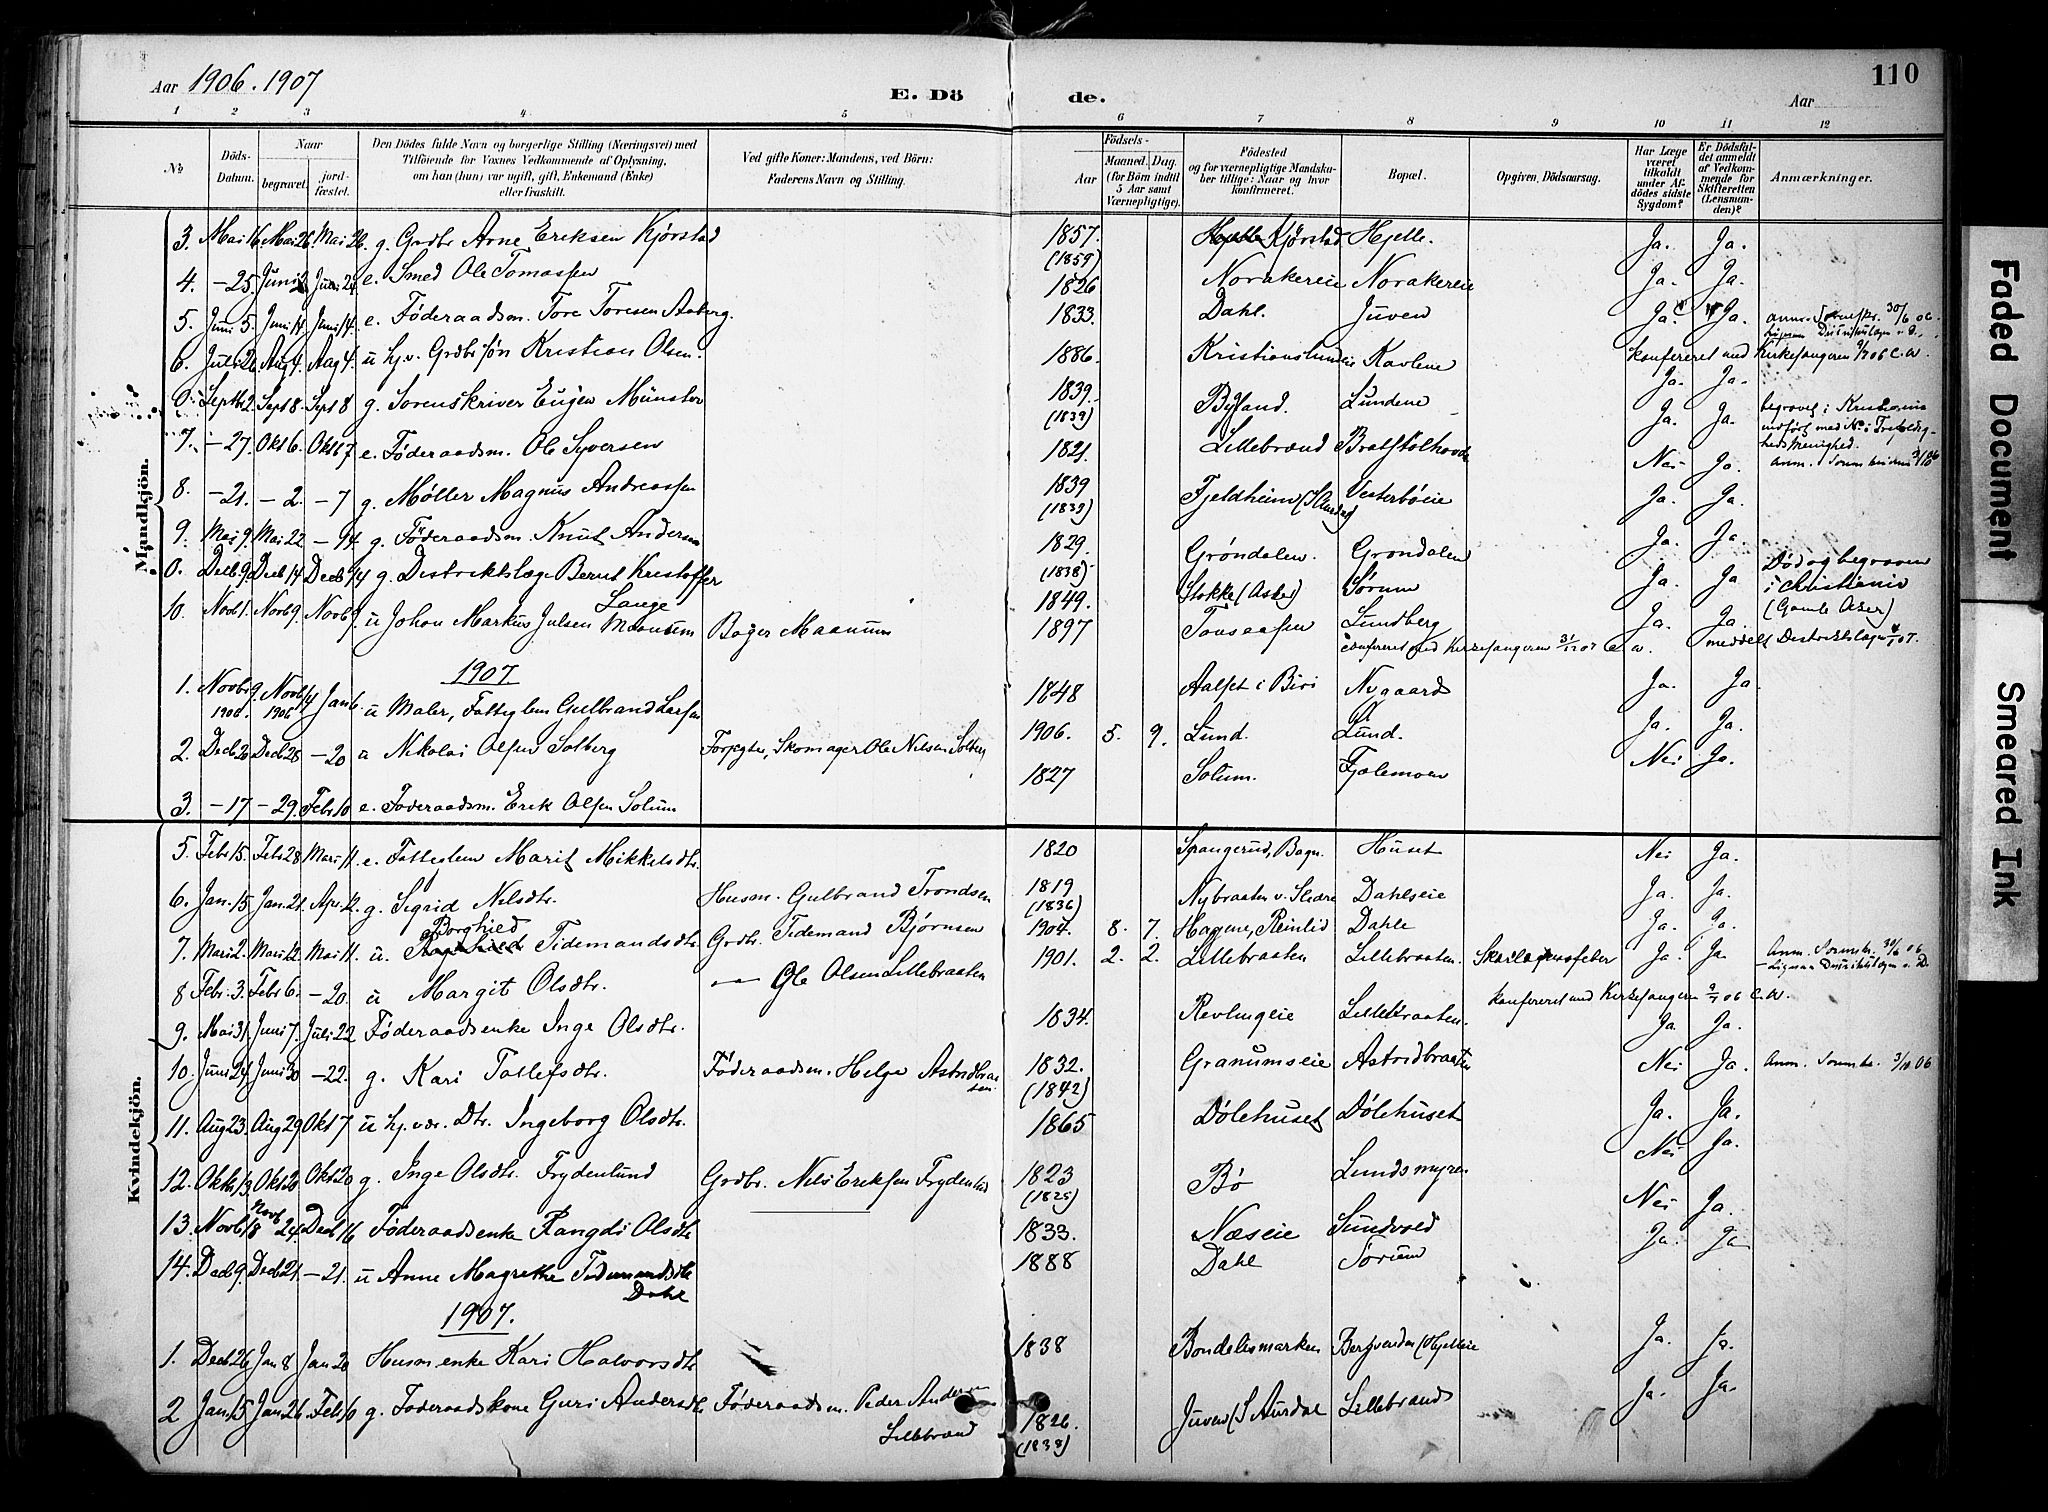 Aar 1906. 1907
E. Dö de.
110
Aar
1 2 3 4 5 6 7 8 9 10 11 12
No
Döds-Datum.
Naar
begravet.
jord-fæstet.
Den Dödes fulde Navn og borgerlige Stilling (Næringsvei) med
Tilföiende for Voxnes Vedkommende af Oplysning,
om han (hun) var ugift, gift, Enkemand (Enke)
eller fraskilt.
Ved gifte Koner: Mandens, ved Börn:
Faderens Navn og Stilling.
Födsels-
Aar
Maaned. Dag.
(for Börn indtil
5 Aar samt
Værnepligtige).
Födested
og for værnepligtige Mandskaber tillige: Naar og hvor
konfirmeret.
Bopæl.
Opgiven Dödsaarsag.
Har Læge været tilkaldt under Afdödes sidste Sygdom?
Er Dödsfaldet anmeldt af Vedkommende for Skifteretten (Lensmanden)?
Anmærkninger.
Mandkjön.
3. Mai 16 Mai 26 Mai 26 g. Grdbr Arne Eriksen Kjørstad 1857. (1859) Kjørstad Hjelle. Ja. Ja.
4. -25. Juni 2 Juni 24 e. Smed Ole Tomassen 1826 Norakereie Norakereie Ja. Ja.
5. Juni 5. Juni 14. Juni 14. e. Føderaadsm. Tore Toresen Aaberg. 1833. Dahl. Juven Ja. Ja. anm. 30/6 06.
6. Juli 26 Aug 4. Aug 4. u hj.v. Grdbrsøn Kristian Olsen. 1886. Kristianslund Kavlene Ja. Ja.
konfereret med Kirkesangeren 9/7 06 C.W.
0. Septbr 2. Sept 8. Sept 8 g. Sorenskriver Eugen Münster 1839. (1839) Bygland. Lundene Ja. Ja. begravet i Kristiania
indført med No i Trefoldigheds Menighed.
7. -27. Okt 6. Okt 7 e. Føderaadsm. Ole Syversen 1821. Lillebrand Nei Ja. anm. 3/10 06
8. -21. -2. -7 g. Møller Magnus Andreassen 1839 (1839) Fjeldheim (S Aurdal) Vesterbøeie Ja. Ja.
9. Mai 9. Mai 22 -14. g. Føderaadsm. Knut Andersen 1829. (1838) Grøndalen. Grøndalen Ja. Ja.
0. Decb. 9. Decb 14 Decb 14 g. Distriktslæge Bernt Kristoffer Lange 1849. Stokke (Asker) Sørum Ja. Ja Død og begraven
i Christiania
(Gamle Aker)
10. Novb 1. Novb 9. Novb 9. u Johan Markus Julsen Maanum Bager Maanum 1897 Tonsaasen Lundberg Ja. Ja.
confereret med Kirkesangeren 31/12 07 C.W. meddelt Distriktslægen 4/1 07.
1907
1. Novbr 9. 1906. Novb 14 1906 Jan 6. u Maler, Fattiglem Gulbrand Larsen 1848 Aalset i Biri Nygaard Ja. Ja
2. Decb 20 Decb 28 -20 u Nikolai Olsen Solberg Forpagter, Skomager Ole Nilsen Solberg 1906. 5. 9. Lund. Lund. Ja. Ja.
3. -17. -29. Febr 10 e. Føderaadsm. Erik Olsen Solum 1827 Solum. Fjølemoen Nei Ja.
Kvindekjön.
5. Febr 15. Febr 28 Marts 11. e. Fattiglem Marit Mikkelsdtr. 1820 Spangerud, Bagn. Huset Nei Ja.
6. Jan. 15 Jan. 21. Apr. 12. g. Sigrid Nilsdtr. Husm. Gulbrand Trondsen 1819 (1836) Nybraaten v. Slidre Dahlseie Ja. Ja.
7. Marts 2. Marts 12 Mai 11. u. Borghild Tidemandsdtr. Grdbr. Tidemand Bjørnsen 1904. 8. 7. Hagene, Reinlid Dahle Ja. Ja.
8 Febr. 3. Febr 6. -20. u Margit Olsdtr. — Ole Olsen Lillebraaten 1901. 2. 2. Lillebraaten Lillebraaten. Skarlagensfeber Ja. Ja. Anm. 30/6 06.
konfereret med Kirkesangeren 9/7 06 C.W.
9. Mai 31. Juni 7. Juli 22 Føderaadsenke Inge Olsdtr. 1834. Revlingeie Lillebraaten. Ja. Ja.
10. Juni 24. Juni 30 -22. g. Kari Tollefsdtr. Føderaadsm. Helge Astridbraaten. 1832. (1842) Granumseie Astridbraaten Nei Ja. Anm. 3/10 06
11. Aug 23. Aug 29 Okt 7 u hj.vær. Dtr. Ingeborg Olsdtr. 1865 Dølehuset Dølehuset Ja. Ja.
12. Oktbr 13. Okt 20 Okt 20 g. Inge Olsdtr. Frydenlund Grdbr. Nils Eriksen Frydenlund 1823 (1825) Bø Lundsmyren Nei Ja.
13. Novb 18 Novb 24. Decb 16 Føderaadsenke Rangdi Olsdtr 1833. Næseie Sundvold Nei Ja.
14. Decb 9. Decb 21. -21. u Anne Magrethe Tidemandsdtr Dahl 1888 Dahl Sørum Ja. Ja
1907.
1. Decb 26 Jan 8 Jan 20 Husm enke Kari Halvorsdtr 1838 Bondelismarken Ja. Ja.
2 Jan 15 Jan 26. Febr 10 g. Føderaadskone Guri Andersdtr Føderaadsm. Peder Andersen
Lillebrand 1826. (1838) Juven (S Aurdal Lillebrand Ja. Ja.
Faded Document
Smeared Ink